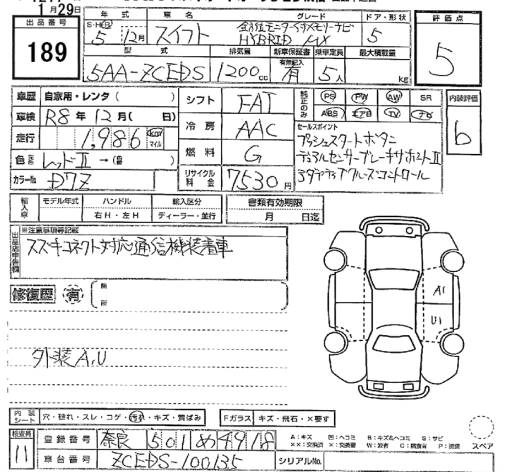 1月29日
出品番号 189
年式 車名 グレード ドア・形状 評価点
S・H・R 5年12月 スイフト 全方位モニター付メモリーナビ HYBRID MX 5
5
型式 排気量 新車保証書 乗車定員 最大積載量
有無記入
5AA-ZCEDS 1200cc 有 5人 kg
車歴 自家用・レンタ( ) シフト FAT 純正のみ PS PW AW SR 内装評価
車検 R8年12月( 日) ABS エアB TV ナビ b
走行 1,986 km マイル 冷房 AAC セールスポイント
プッシュスタートボタン
色 レッドII →( ) 燃料 G デュアルセンサーブレーキサポートII
カラーNo. D7Z リサイクル料金 7530円 アダプティブクルーズコントロール
輸入車 モデル年式 ハンドル 輸入区分 書類有効期限
右H・左H ディーラー・並行 月 日迄
※注意事項等記載
スズキコネクト対応通信機装着車
修復歴 有 箇所
A1
U1
外装A,U
内装シート 穴・破れ・スレ・コゲ・汚れ・キズ・黄ばみ Fガラス キズ・飛石・X要す
検査員 11 登録番号 奈良 501 め 4918
A:キズ U:凹ヘコミ B:キズ&ヘコミ S:サビ
スペア
車台番号 ZCEDS-100135 シリアルNo.